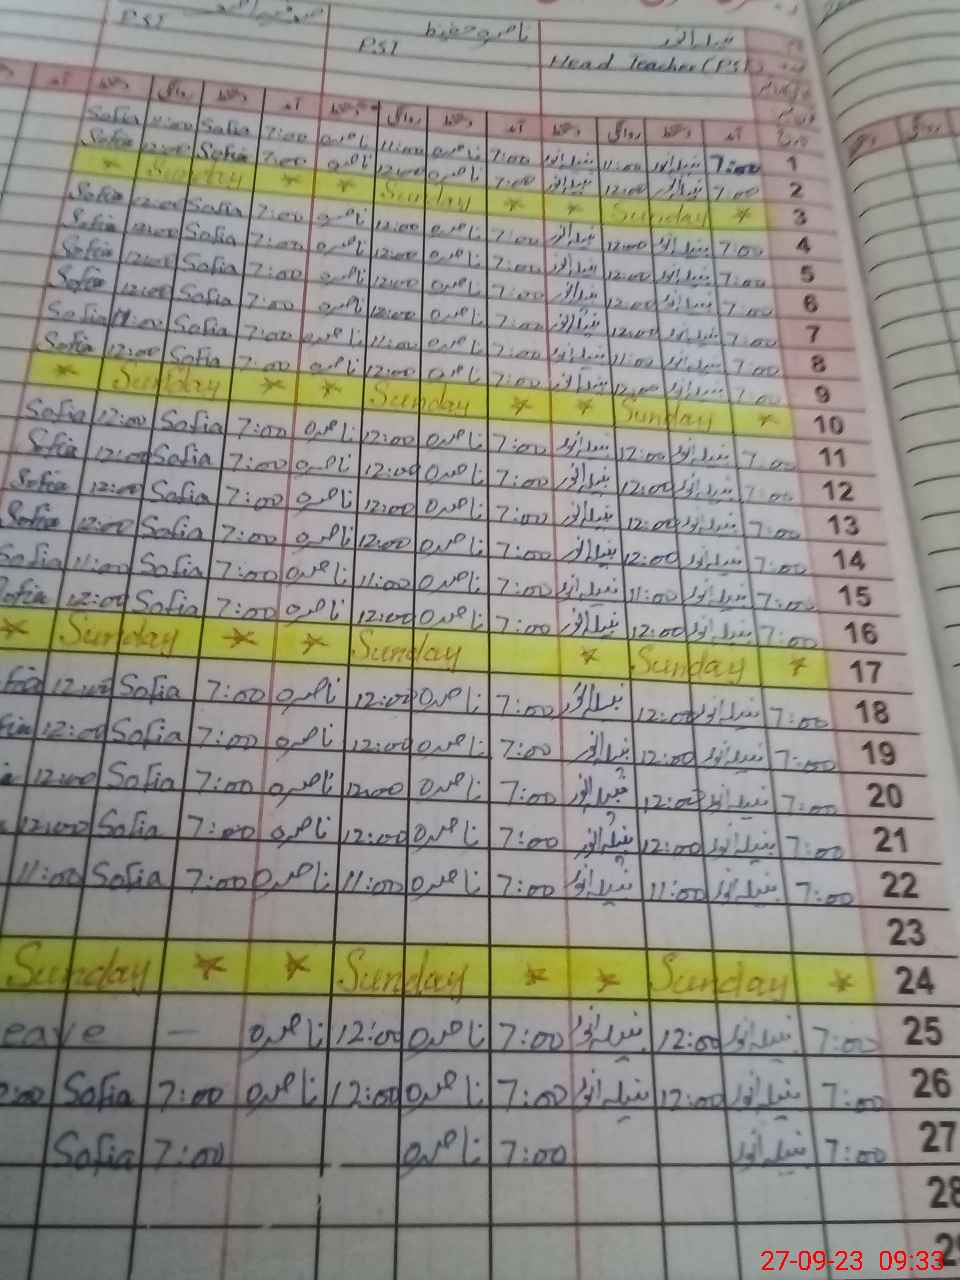 نبیلہ انور ناصرہ حفیظ
Head Teacher (PST) PST PST
آمد دستخط روانگی دستخط آمد دستخط روانگی دستخط آمد دستخط روانگی دستخط آمد
1 7:00 نبیلہ انور 11:00 نبیلہ انور 7:00 ناصرہ 11:00 ناصرہ 7:00 Sofia 11:00 Sofia
2 7:00 نبیلہ انور 12:00 نبیلہ انور 7:00 ناصرہ 12:00 ناصرہ 7:00 Sofia 12:00 Sofia
3 * Sunday * * Sunday * * Sunday *
4 7:00 نبیلہ انور 12:00 نبیلہ انور 7:00 ناصرہ 12:00 ناصرہ 7:00 Sofia 12:00 Sofia
5 7:00 نبیلہ انور 12:00 نبیلہ انور 7:00 ناصرہ 12:00 ناصرہ 7:00 Sofia 12:00 Sofia
6 7:00 نبیلہ انور 12:00 نبیلہ انور 7:00 ناصرہ 12:00 ناصرہ 7:00 Sofia 12:00 Sofia
7 7:00 نبیلہ انور 12:00 نبیلہ انور 7:00 ناصرہ 12:00 ناصرہ 7:00 Sofia 12:00 Sofia
8 7:00 نبیلہ انور 11:00 نبیلہ انور 7:00 ناصرہ 11:00 ناصرہ 7:00 Sofia 11:00 Sofia
9 7:00 نبیلہ انور 12:00 نبیلہ انور 7:00 ناصرہ 12:00 ناصرہ 7:00 Sofia 12:00 Sofia
10 * Sunday * * Sunday * * Sunday *
11 7:00 نبیلہ انور 12:00 نبیلہ انور 7:00 ناصرہ 12:00 ناصرہ 7:00 Sofia 12:00 Sofia
12 7:00 نبیلہ انور 12:00 نبیلہ انور 7:00 ناصرہ 12:00 ناصرہ 7:00 Sofia 12:00 Sofia
13 7:00 نبیلہ انور 12:00 نبیلہ انور 7:00 ناصرہ 12:00 ناصرہ 7:00 Sofia 12:00 Sofia
14 7:00 نبیلہ انور 12:00 نبیلہ انور 7:00 ناصرہ 12:00 ناصرہ 7:00 Sofia 12:00 Sofia
15 7:00 نبیلہ انور 11:00 نبیلہ انور 7:00 ناصرہ 11:00 ناصرہ 7:00 Sofia 11:00 Sofia
16 7:00 نبیلہ انور 12:00 نبیلہ انور 7:00 ناصرہ 12:00 ناصرہ 7:00 Sofia 12:00 Sofia
17 * Sunday * Sunday * * Sunday *
18 7:00 نبیلہ انور 12:00 نبیلہ انور 7:00 ناصرہ 12:00 ناصرہ 7:00 Sofia 12:00
19 7:00 نبیلہ انور 12:00 نبیلہ انور 7:00 ناصرہ 12:00 ناصرہ 7:00 Sofia 12:00
20 7:00 نبیلہ انور 12:00 نبیلہ انور 7:00 ناصرہ 12:00 ناصرہ 7:00 Sofia 12:00
21 7:00 نبیلہ انور 12:00 نبیلہ انور 7:00 ناصرہ 12:00 ناصرہ 7:00 Sofia 12:00
22 7:00 نبیلہ انور 11:00 نبیلہ انور 7:00 ناصرہ 11:00 ناصرہ 7:00 Sofia 11:00
23
24 * Sunday * * Sunday * * Sunday
25 7:00 نبیلہ انور 12:00 نبیلہ انور 7:00 ناصرہ 12:00 ناصرہ — eave
26 7:00 نبیلہ انور 12:00 نبیلہ انور 7:00 ناصرہ 12:00 ناصرہ 7:00 Sofia
27 7:00 نبیلہ انور 7:00 ناصرہ 7:00 Sofia
28
27-09-23 09:33